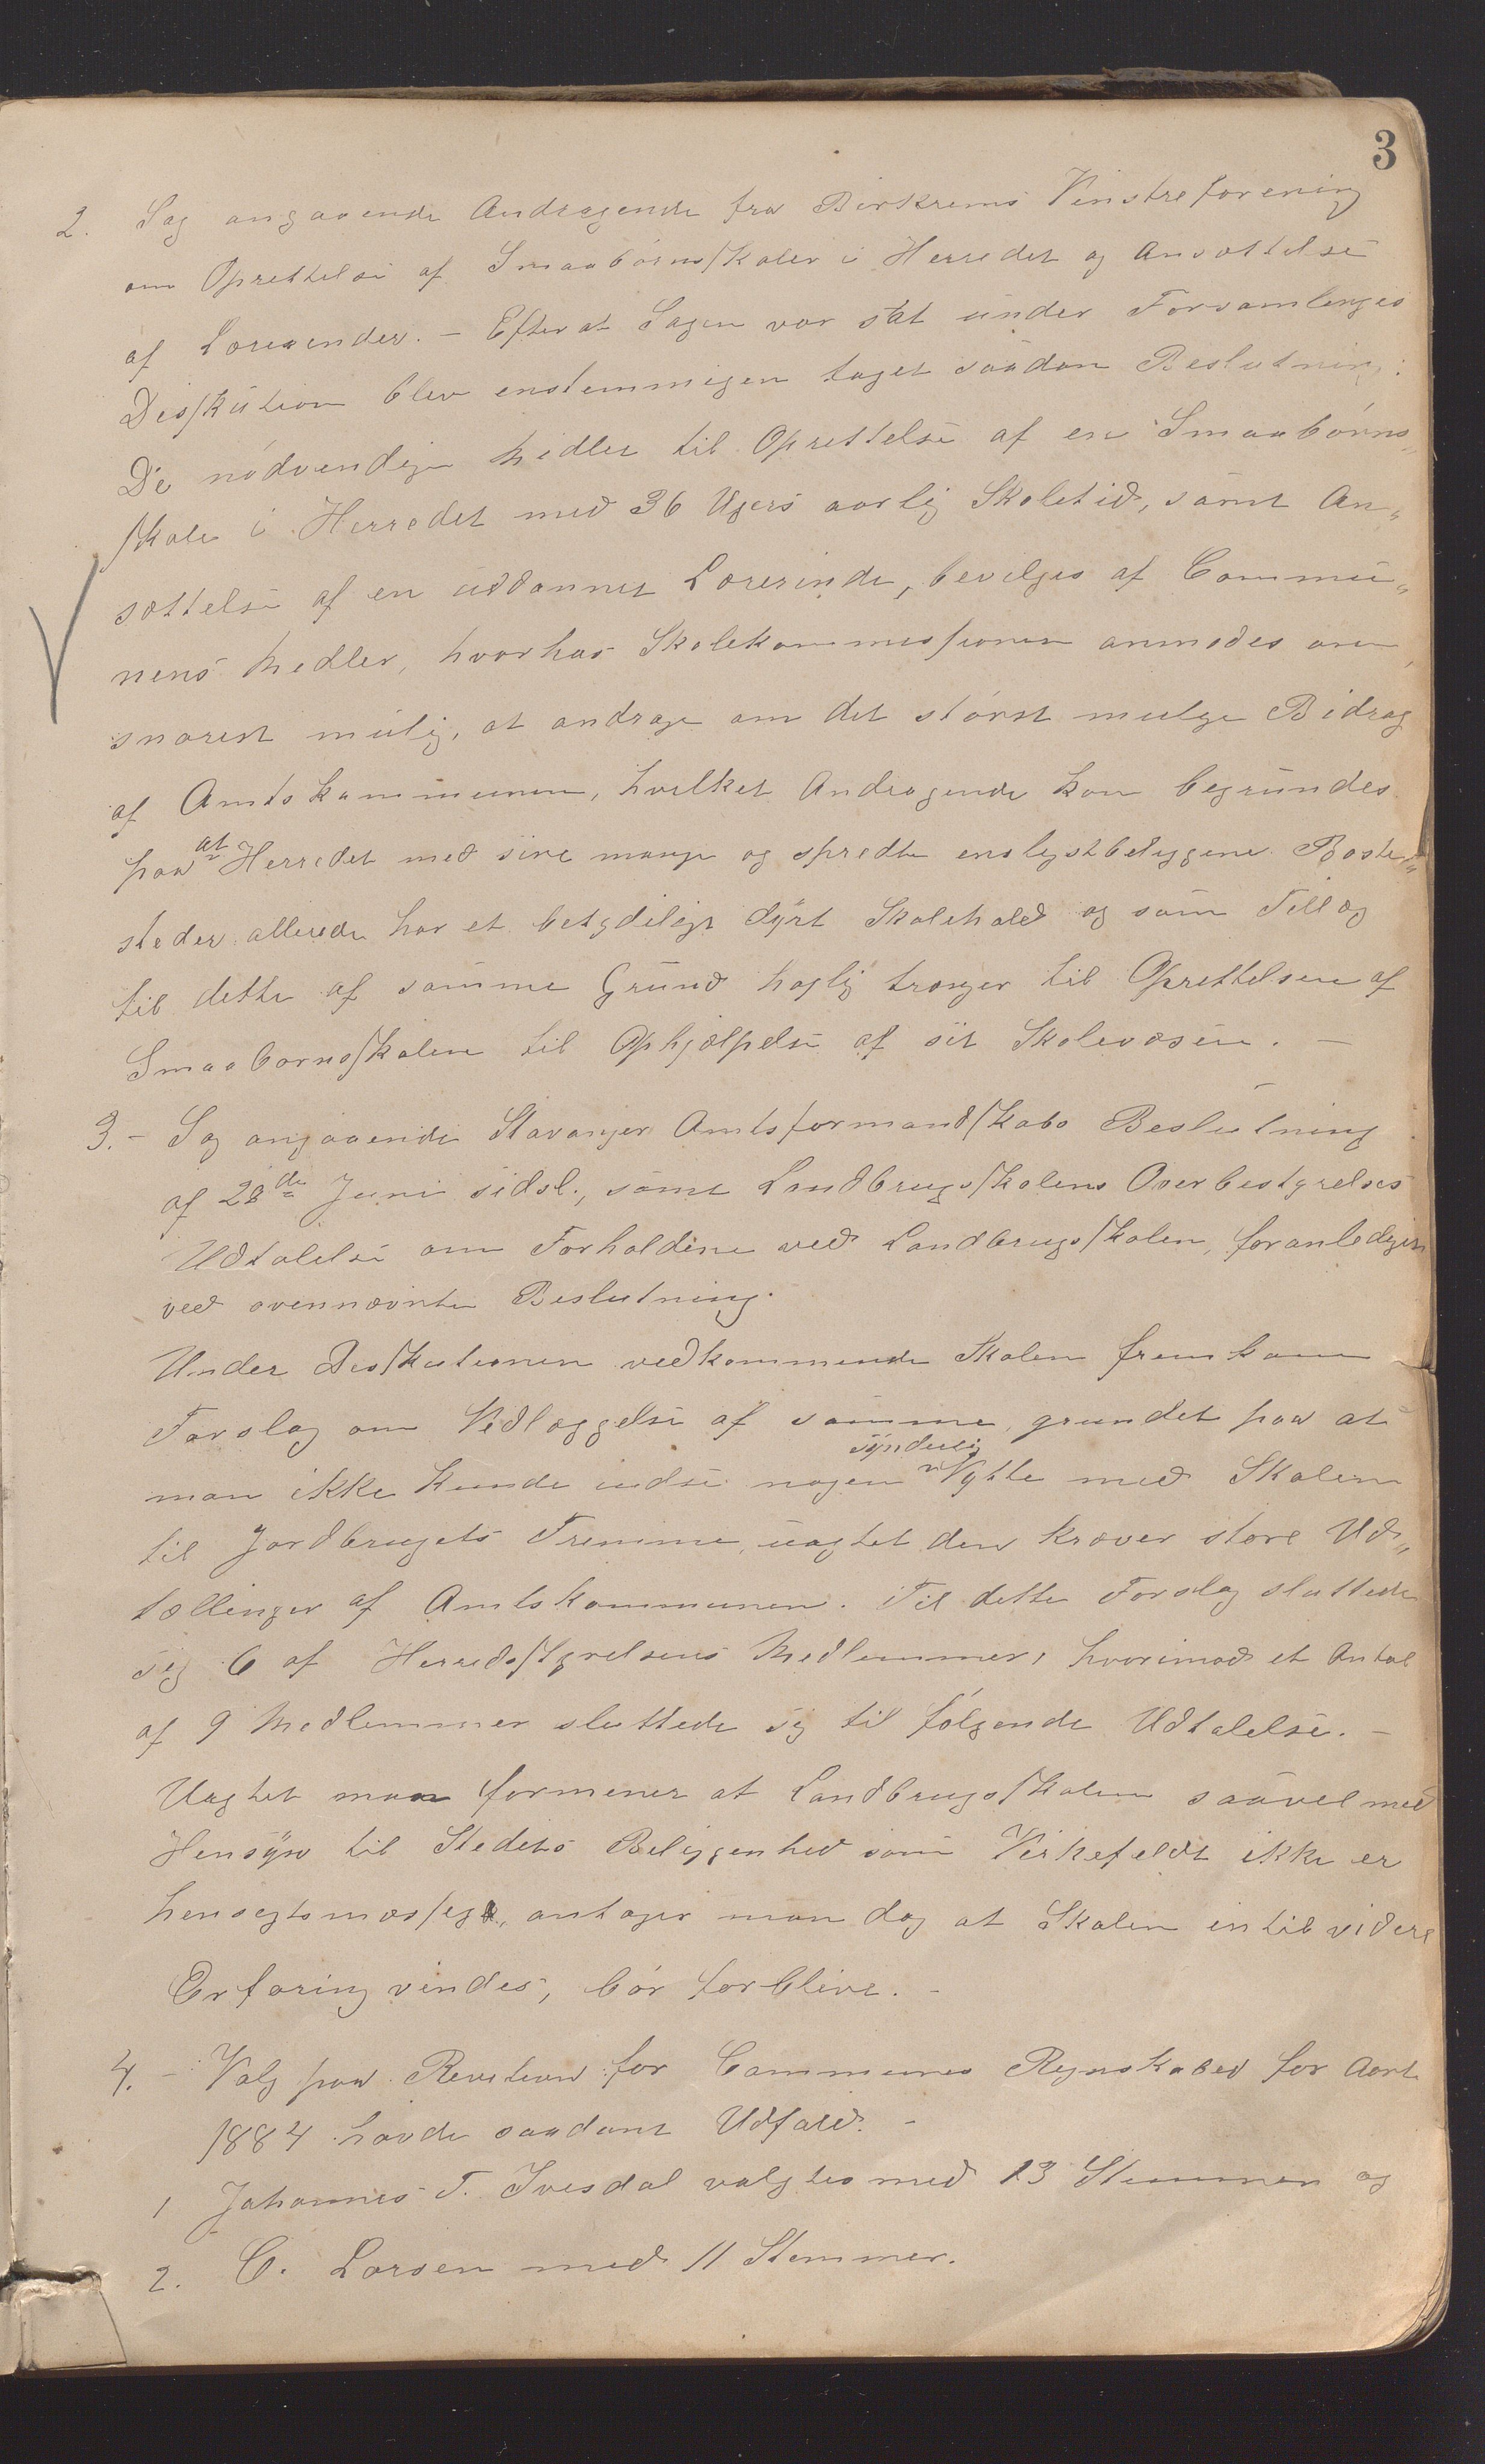 3
2. Sag angaaende Andragende fra Birkrems Vinstreforening
om Oprettelse af Smaabørnsskoler i Herredet og Ansættelse
af Lærerinder. – Efter at Sagen var sat under Forsamlinges
Diskution blev enstemmigen taget saadan Beslutning:
De nødvendige Midler til Oprettelse af en Smaabørns„
skole i Herredet med 36 Ugers aarlig Skoletid, samt An„
sættelse af en uddannet Lærerinde, bevilges af Commu„
nens Medler, hvorhos Skolekommissionen anmodes om,
snarest mulig, at andrage om det størst mulge Bidrag
af Amtskommunen, hvilket Andragende kan begrundes
paa at Herredet med sine mange og spredte Boste„
steder allerede har et betydeligt dyrt Skolehold og som Tillæg
til dette af samme Grund høglig trænger til Oprettelsen af
Smaabørnsskolen til Ophjælpelse af sit Skolevæsen. –
3. – Sag angaaende Stavanger Amtsformandskabs Beslutning
af 28de Juni sidstl., samt Landbrugsskolens Overbestyrelses
Udtalelse om Forholdene ved Landbrugsskolen, foranlediget
ved ovennævnte Beslutning.
Under Diskutionen vedkommende Skolen fremkom
Forslag om Nedlæggelse af samme, grundet paa at
man ikke kunde indse nogen synderlig Nytte med Skolen
til Jordbrugets Fremme, uagtet den kræver store Ud„
tællinger af Amtskommunen. Til dette Forslag sluttede
sig 6 af Herredsstyrelsens Medlemmer, hvorimod et Antal
af 9 Medlemmer sluttede sig til følgende Udtalelse. –
Uagtet man formener at Landbrugsskolen saavel med
Hensyn til Stedets Beliggenhed som Virkefeldt ikke er
hensegtsmæsseg, antager man dog at Skolen intil videre
Erfaring vindes, bør forblive. –
4. – Valg paa Revisorer for Communes Regnskaber for Aaret
1884 havde saadant Udfald. –
1 Johannes T. Ivesdal valgtes med 13 Stemmer og
2. C. Larsen med 11 Stemmer.